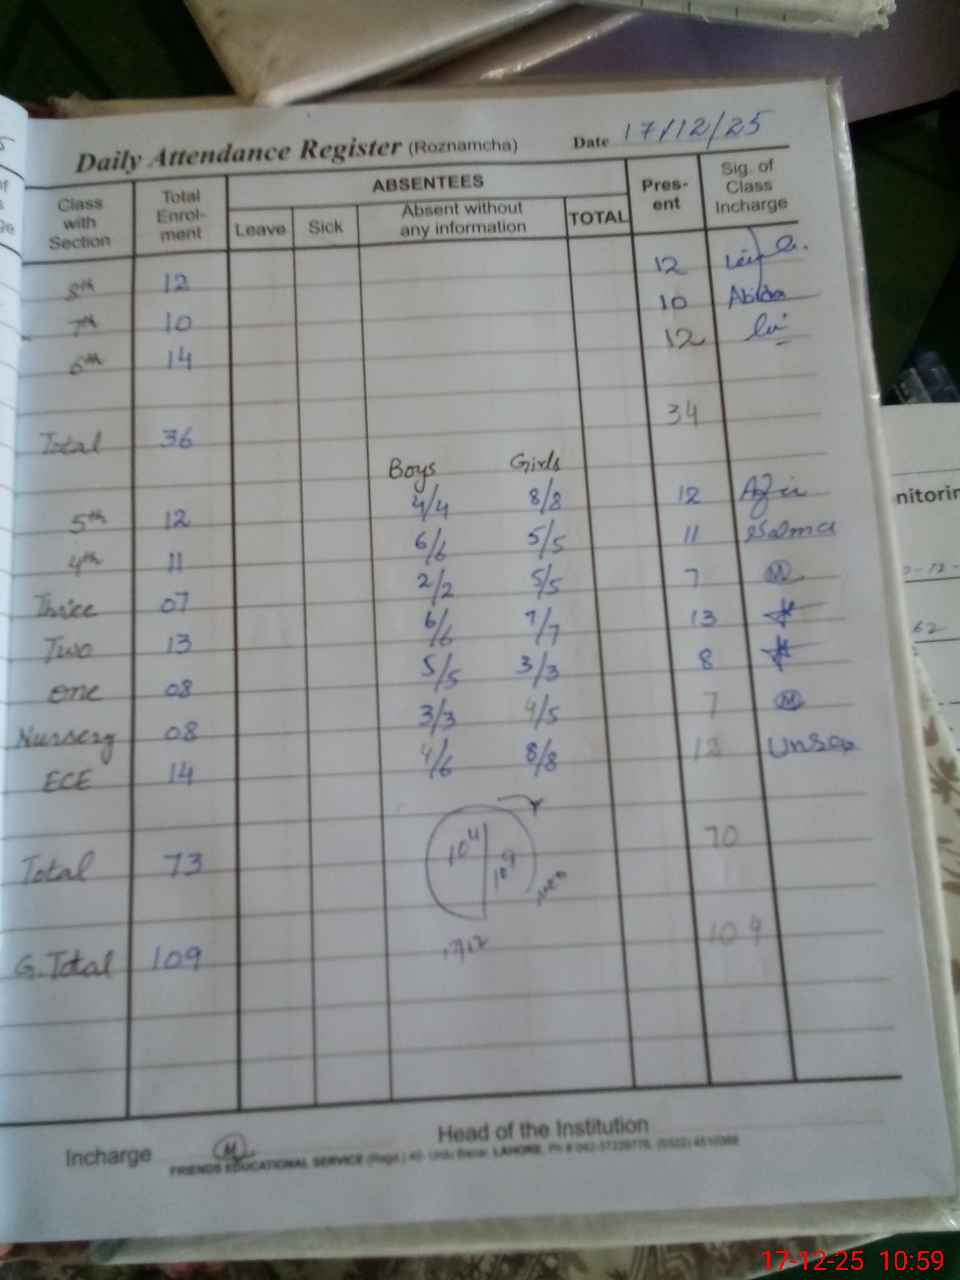 Daily Attendance Register (Roznamcha) Date 17/12/25
Class with Section Total Enrol-ment ABSENTEES Leave Sick Absent without any information TOTAL Pres-ent Sig. of Class Incharge
8th 12 12
7th 10 10 Abida
6th 14 12
Total 36 34
Boys Girls
5th 12 4/4 8/8 12
4th 11 6/6 5/5 11 Salma
Three 07 2/2 5/5 7 M
Two 13 6/6 7/7 13
One 08 5/5 3/3 8
Nursery 08 3/3 4/5 7 M
ECE 14 4/6 8/8 12
104
109
Total 73 70
G.Total 109 104
Incharge M Head of the Institution
FRIENDS EDUCATIONAL SERVICE (Regd.) 40- Urdu Bazar, LAHORE.
nitorin
62
17-12-25 10:59